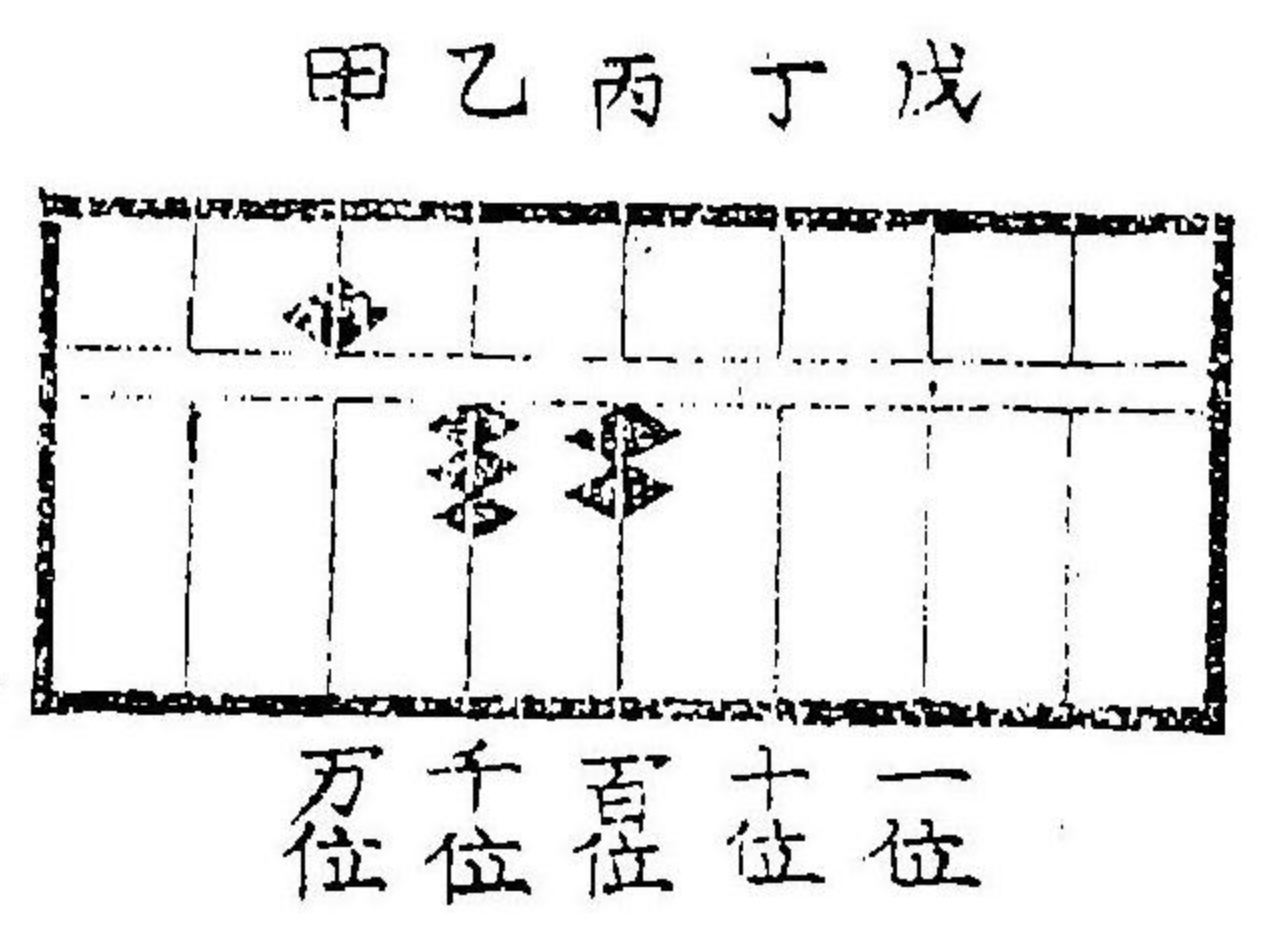 甲乙丙丁戊
万位 千位 百位 十位 一位